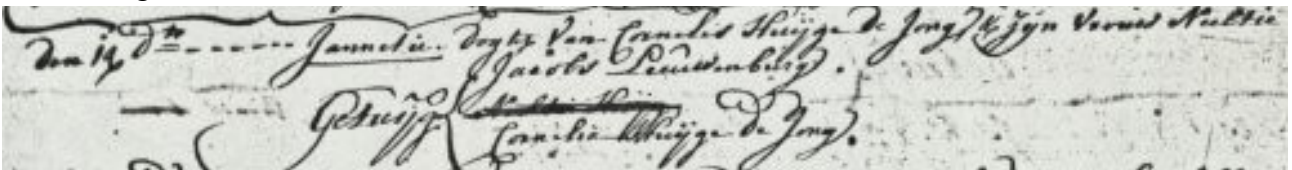 Den 19 dto Jannetie Dogtr Van Cornelis Huijge de Jong & Zijn Vrouw Neeltie
Jacobs Leeuwenburg.
Getuijge
Cornelia Huijge de Jong.